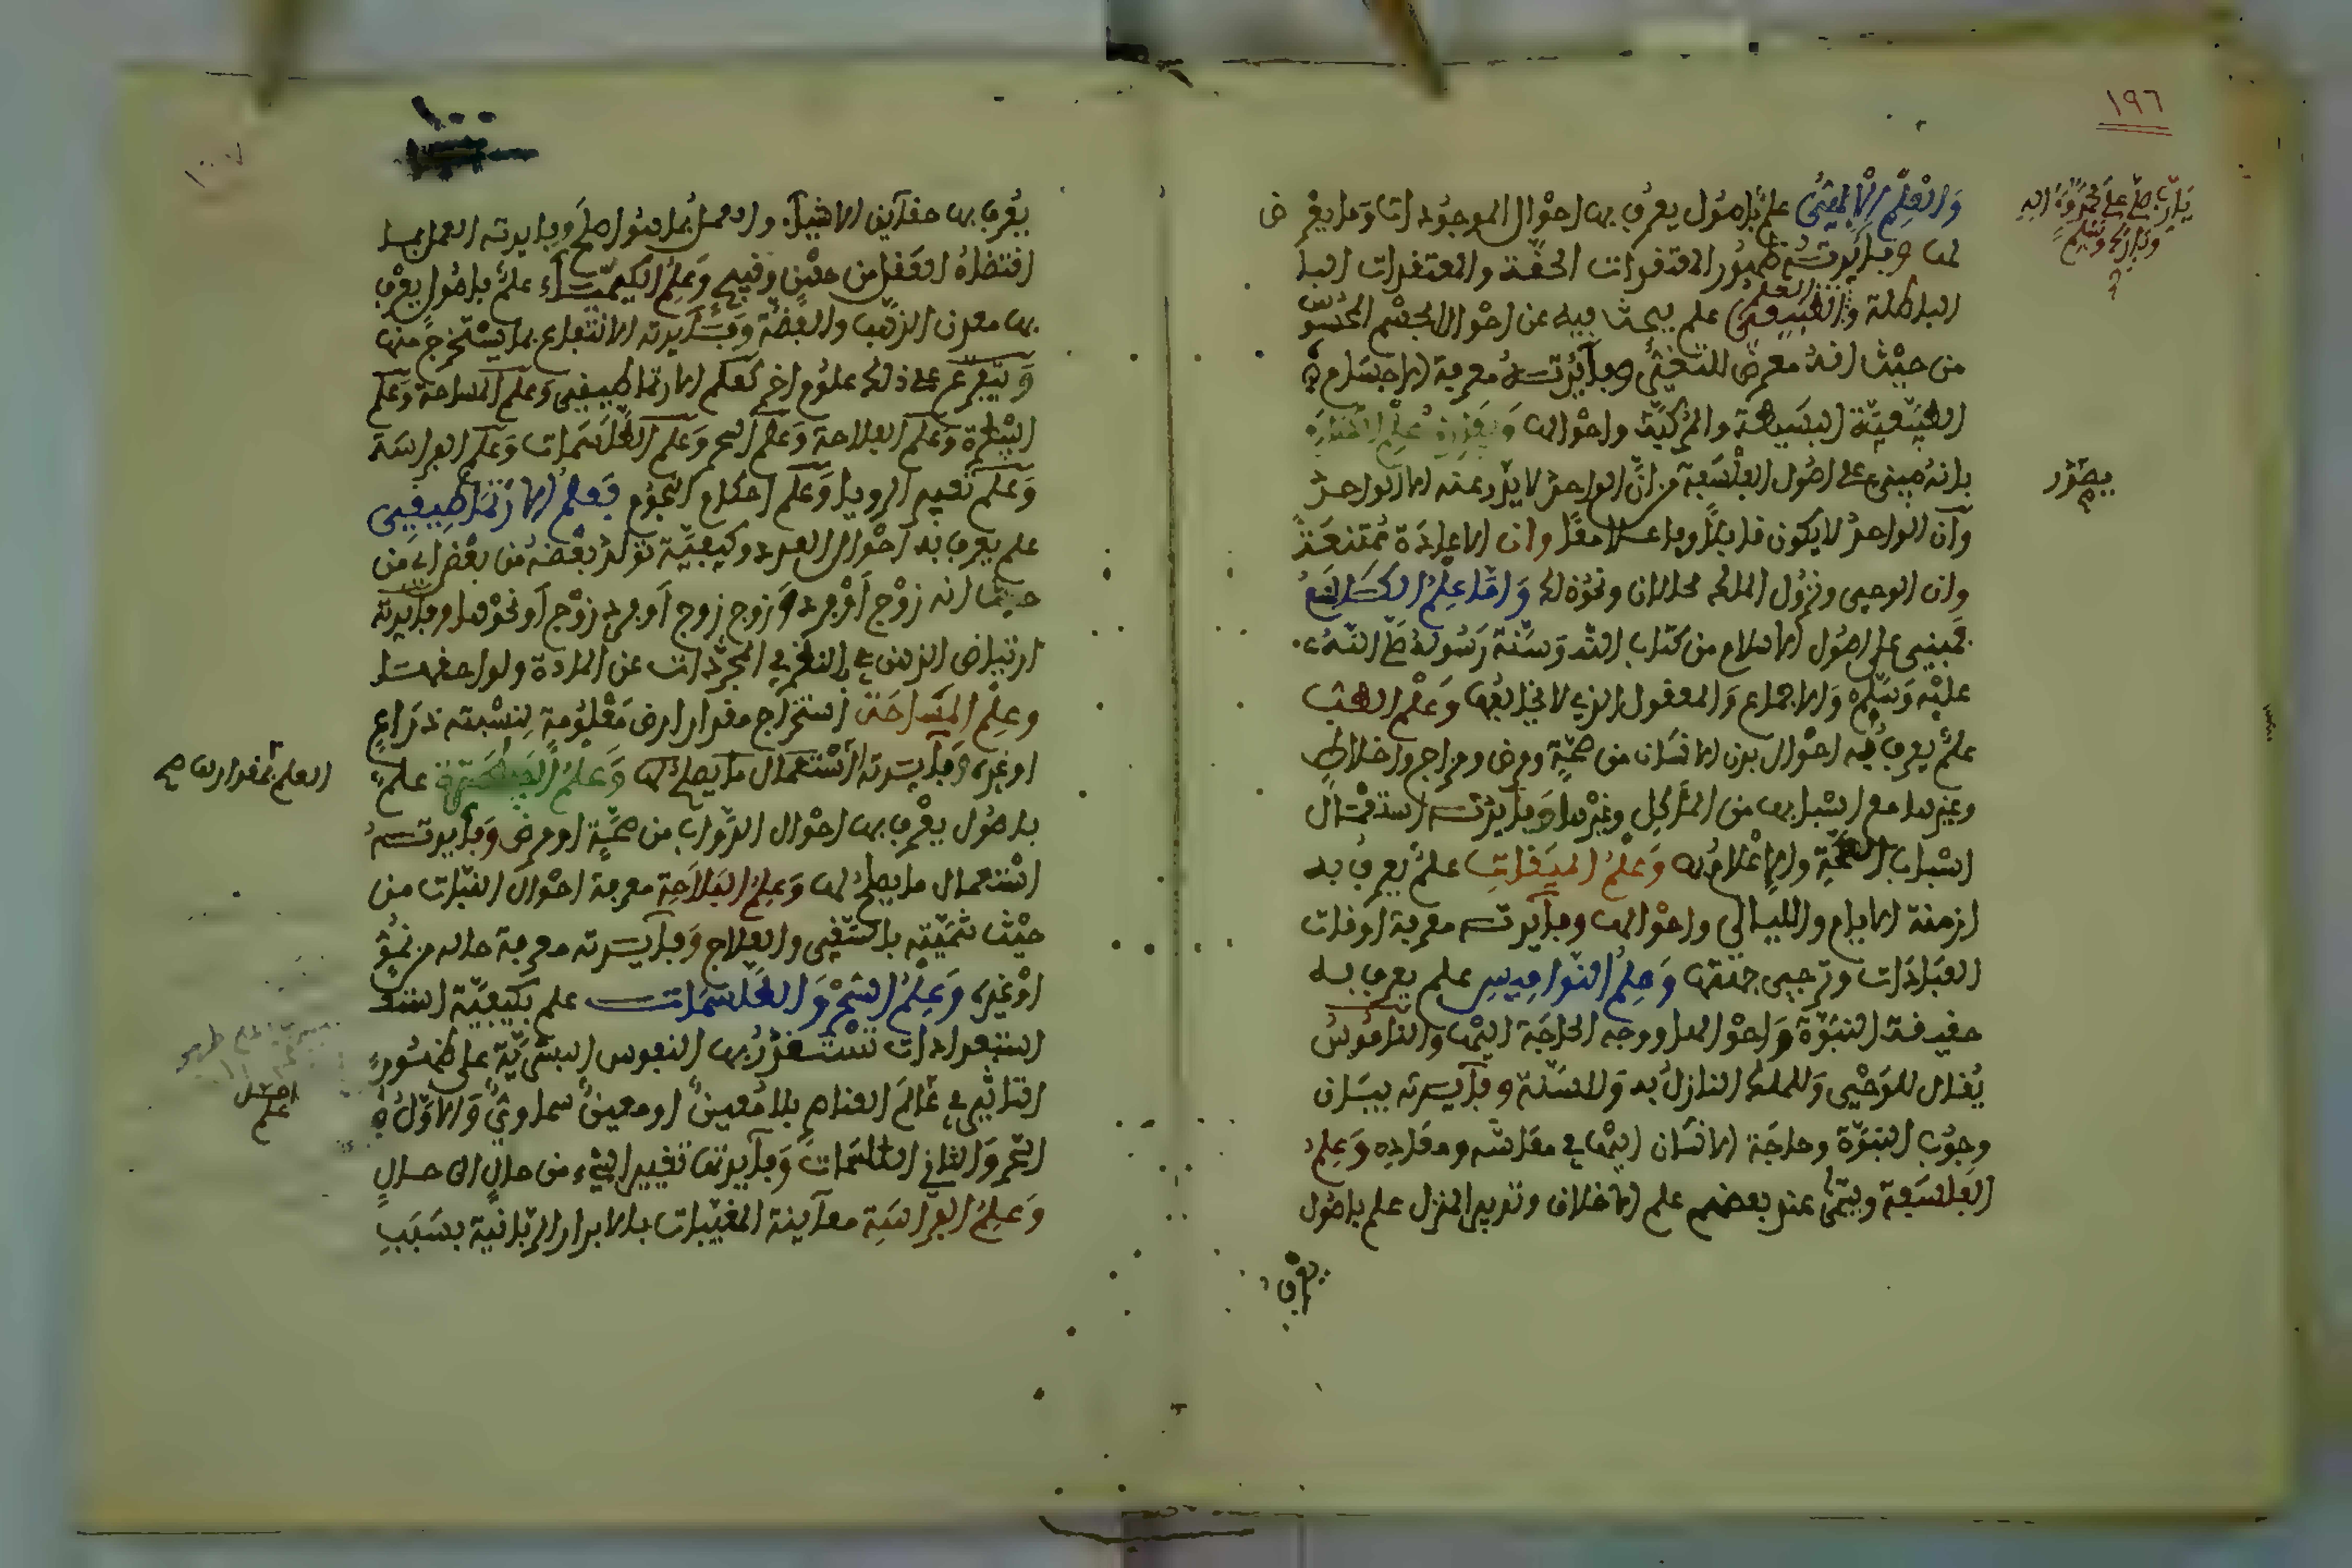 ١٩٦
يارب صل على محمد وءاله
وبارك وسلم
والعلم الالهي علم باصول يعرف بها احوال الموجودات وما يعرض
لها وفايدته ظهور المعتقدات الحقة والمعتقدات البا
الباطلة والعلم الطبيعي علم يبحث فيه عن احوال الجسم المحسوس
من حيث انه معرض للتغيير وفايدته معرفة الاجسام
الطبيعية البسيطة والمركبة واحوالها
بانه مبني على اصول الفلسفة من ان الواحد لا يصدر عنه الا الواحد
يصدر
وان الواحد لا يكون قابلا وفاعلا معا وان الاعادة ممتنعة
وان الوحي ونزول الملك محالان ونحو ذلك واما علم الكلام
فمبني على اصول الاسلام من كتاب الله وسنة رسوله صلى الله
عليه وسلم والاجماع والمعقول الذي لا يخالفها وعلم الطب
علم يعرف به احوال بدن الانسان من صحة ومرض ومزاج واخلاط
وغيرها مع اسبابها من المأكل وغيرها وفايدته استعمال
اسباب الصحة وعلم الميقات علم يعرف به
ازمنة الايام والليالي واحوالها وفايدته معرفة اوقات
العبادات وتوخي جهتها وعلم النواميس علم يعرف به
حقيقة النبوة واحوالها ووجه الحاجة اليها والناموس
يقال للوحي وللملك النازل به وللسنة وفايدته بيان
وجوب النبوة وحاجة الانسان اليها في معاشه ومعاده وعلم
الفلسفة ويسمى عند بعضهم علم الاخلاق وتدبير المنزل علم باصول
يعرف
يعرف بها حقايق الاشياء والعمل بما هو اصلح وفايدته العمل بما
اقتضاه العقل من حسن وقبيح وعلم الكيمياء علم باصول يعرف
بها معدن الذهب والفضة وفايدته الانتفاع بما يستخرج منها
ويتفرع على ذلك علوم اخر كعلم الارتماطيقي وعلم المساحة وعلم
البيطرة وعلم الفلاحة وعلم السحر وعلم الطلسمات وعلم الفراسة
وعلم تعبير الرويا وعلم احكام النجوم فعلم الارتماطيقي
علم يعرف به احوال العدد وكيفية تولد بعضه من بعض اي من
حيث انه زوج او فرد او زوج زوج او فرد زوج او نحوها وفايدته
ارتياض الذهن في النظر في المجردات عن المادة ولواحقها
وعلم المساحة استخراج مقدار ارض معلومة بنسبة ذراع
او غيره وفايدته استعمال ما يصلح لها وعلم البيطرة علم
العلم بمقدارها صح
باصول يعرف بها احوال الدواب من صحة او مرض وفايدته
استعمال ما يصلح لها وعلم الفلاحة معرفة احوال النبات من
حيث تنميته بالسقي والعلاج وفايدته معرفة حاله من نمو
او غيره وعلم السحر والطلسمات علم بكيفية است
استعدادات تقتدر بها النفوس البشرية على ظهور
التاثير في عالم العناصر بلا معين او معين سماوي والاول
علم
السحر والثاني الطلسمات وفايدتها تغيير الشيء من حال الى حال
وعلم الفراسة معاينة المغيبات بالانوار الربانية بسبب